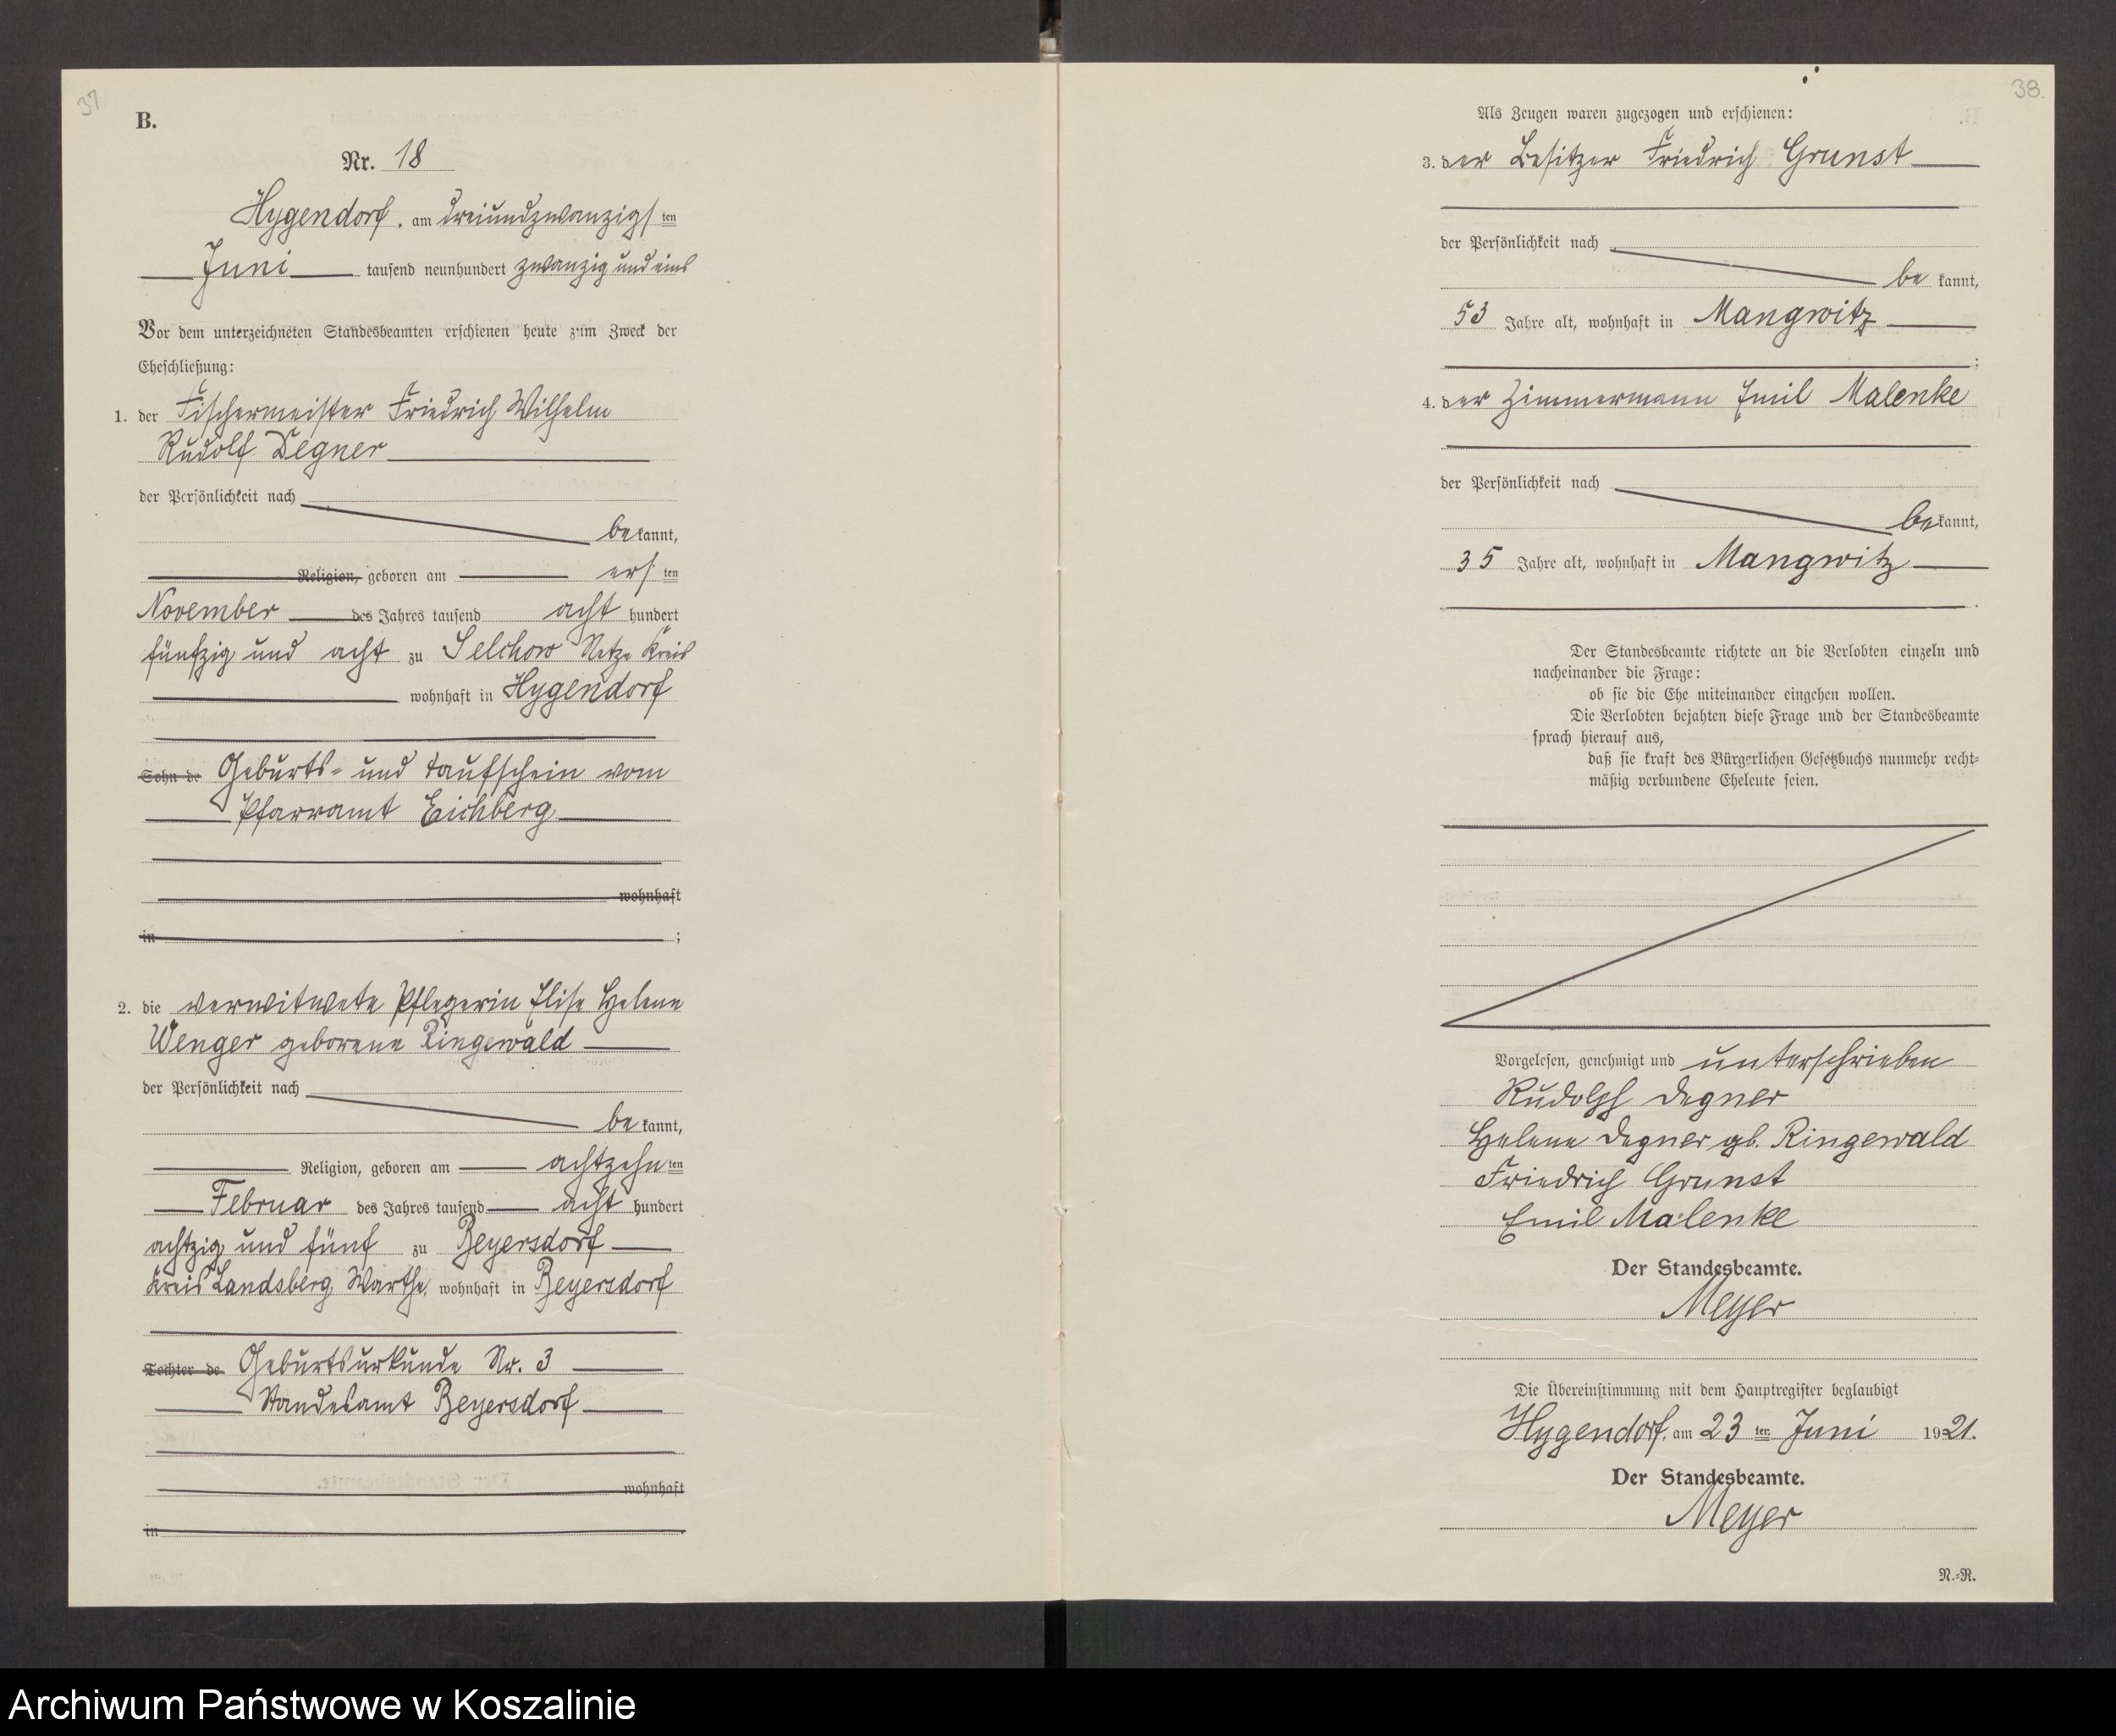 37
B.
Nr. 18
Hygendorf. am dreiundzwanzigsten
Juni tausend neunhundert zwanzig und eins
Vor dem unterzeichneten Standesbeamten erschienen heute zum Zweck der
Eheschließung:
1. der Fischermeister Friedrich Wilhelm
Rudolf Degner
der Persönlichkeit nach
be kannt,
Religion, geboren am ersten
November des Jahres tausend acht hundert
fünfzig und acht zu Selchow Netze Kreis
wohnhaft in Hygendorf
Sohn de Geburts- und Taufschein vom
Pfarramt Eichberg
wohnhaft
in ;
2. die verwitwete Pflegerin Elise Helene
Wenger geborene Ringewald
der Persönlichkeit nach
be kannt,
Religion, geboren am achtzehnten
Februar des Jahres tausend acht hundert
achtzig und fünf zu Beyersdorf
Kreis Landsberg Warthe, wohnhaft in Beyersdorf
Tochter de Geburtsurkunde Nr. 3
Standesamt Beyersdorf
wohnhaft
in
38.
Als Zeugen waren zugezogen und erschienen:
3. der Besitzer Friedrich Grunst
der Persönlichkeit nach
be kannt,
53 Jahre alt, wohnhaft in Mangwitz
;
4. der Zimmermann Emil Malenke
der Persönlichkeit nach
be kannt,
35 Jahre alt, wohnhaft in Mangwitz
.
Der Standesbeamte richtete an die Verlobten einzeln und
nacheinander die Frage:
ob sie die Ehe miteinander eingehen wollen.
Die Verlobten bejahten diese Frage und der Standesbeamte
sprach hierauf aus,
daß sie kraft des Bürgerlichen Gesetzbuchs nunmehr recht-
mäßig verbundene Eheleute seien.
Vorgelesen, genehmigt und unterschrieben
Rudolph Degner
Helene Degner gb. Ringewald
Friedrich Grunst
Emil Malenke
Der Standesbeamte.
Meyer
Die Übereinstimmung mit dem Hauptregister beglaubigt
Hygendorf. am 23 ten Juni 1921.
Der Standesbeamte.
Meyer
N.-R.
Archiwum Państwowe w Koszalinie